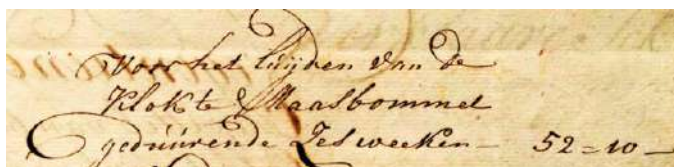 Voor het luijden van de
Klok te Maasbommel
geduurende Zes weeken - 52=10-